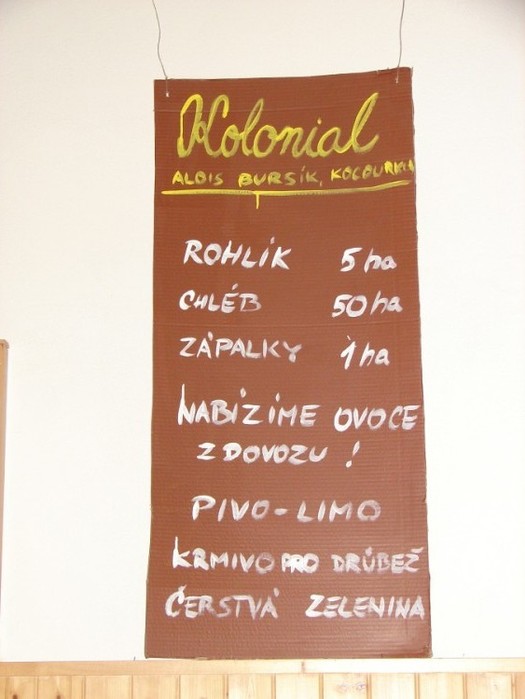 Kolonial
ALOIS BURSÍK, KOCOURKOV
ROHLÍK 5 ha
CHLÉB 50 ha
ZÁPALKY 1 ha
NABÍZÍME OVOCE
Z DOVOZU !
PIVO-LIMO
KRMIVO PRO DRŮBEŽ
ČERSTVÁ ZELENINA